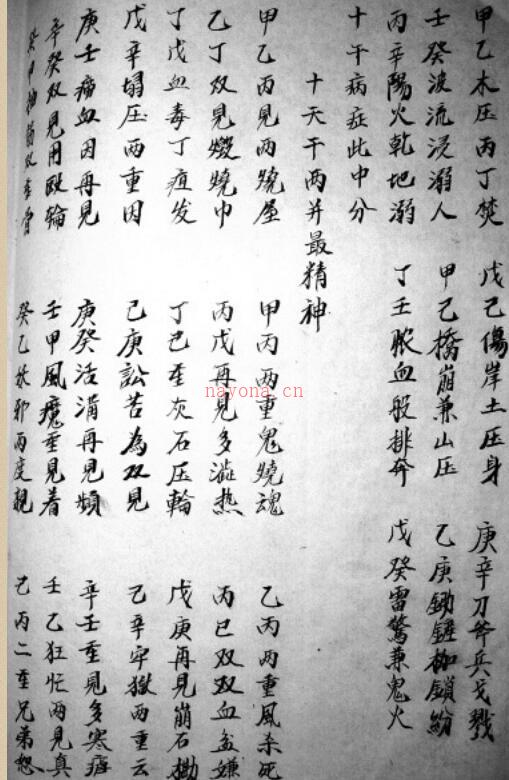 甲乙木压丙丁焚 戊己傷岸土压身 庚辛刀斧兵戈戮
壬癸波流浸溺人 甲己橋崩兼山压 乙庚鋤鎚枷鎖紛
丙辛陽火乾地溺 丁壬脓血般排奔 戊癸雷驚兼鬼火
十干病症此中分
十天干两并最精神
甲乙丙見两燒屋 甲丙两重鬼燒魂 乙丙两重風杀死
乙丁双見燬燒巾 丙戊再見多澁热 丙巳双双血盆嫌
丁戊血毒丁疽发 丁己至灰石压輪 戊庚再見崩石磡
戊辛塌压两重因 己庚訟苦為双見 己辛牢獄两重云
庚壬痛血因再見 庚癸活満再見頻 辛壬重見多寒瘧
辛癸双見用毆輪 壬甲風魔重見着 壬乙狂忙两見真
癸甲抽筋双重 癸乙妖邪两度親 乙丙二重兄弟怒
nayona.cn